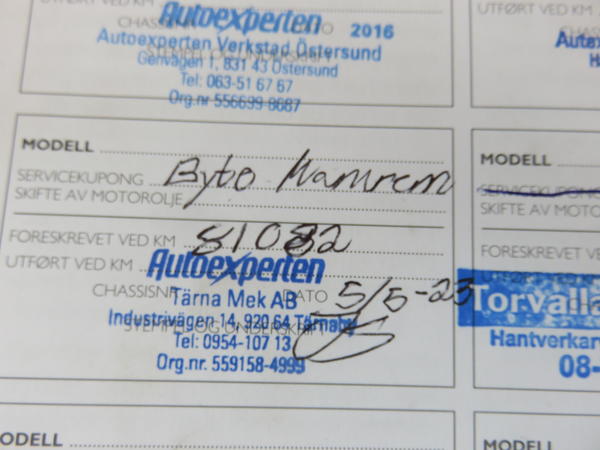 Autoexperten
CHASSISNR DATO 2016
Autoexperten Verkstad Östersund
STEMPEL OG UNDERSKRIFT
Genvägen 1, 831 43 Östersund
Tel: 063-51 67 67
Org.nr 556699-8687
UTFØRT VED
MODELL
SERVICEKUPONG Byte Kamrem
SKIFTE AV MOTOROLJE
FORESKREVET VED KM 81082
UTFØRT VED KM Autoexperten
CHASSISNR DATO 5/5-23
Tärna Mek AB
Industrivägen 14, 920 64 Tärnaby
STEMPEL OG UNDERSKRIFT
Tel: 0954-107 13
Org.nr. 559158-4999
MODELL
SERVICEKUPONG
SKIFTE AV MOTO
FORESKREVET VED
Torvalla
Hantverkar
08-
ODELL
MODELL